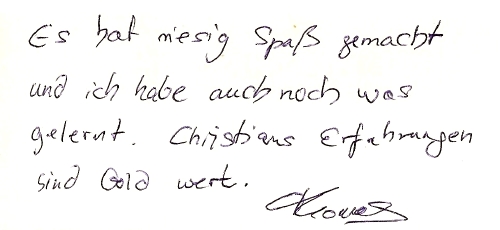 Es hat riesig Spaß gemacht
und ich habe auch noch was
gelernt. Christians Erfahrungen
sind Gold wert.